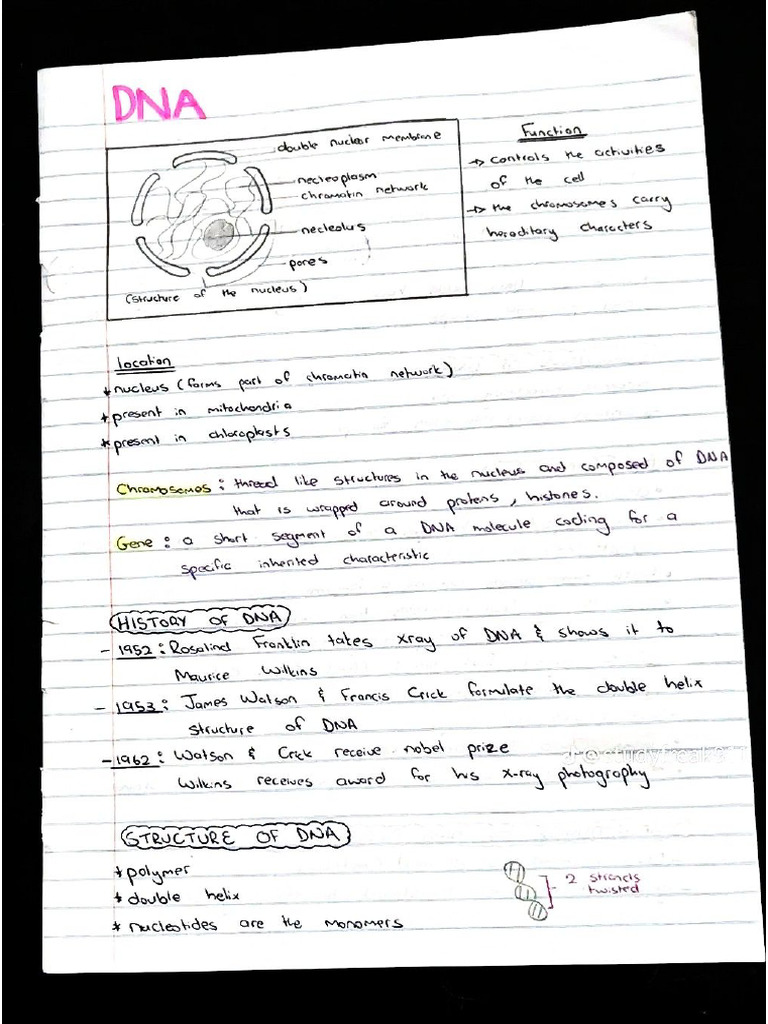 DNA
double nuclear membrane
necleoplasm
chromatin network
necleolus
pores
(structure of the nucleus)
Function
→ controls the activities
of the cell
→ the chromosomes carry
hereditary characters
location
* nucleus (forms part of chromatin network)
* present in mitochondria
* present in chloroplasts
Chromosomes : thread like structures in the nucleus and composed of DNA
that is wrapped around proteins, histones.
Gene : a short segment of a DNA molecule coding for a
specific inherited characteristic
HISTORY OF DNA
- 1952 : Rosalind Franklin takes xray of DNA & shows it to
Maurice Wilkins
- 1953 : James Watson & Francis Crick formulate the double helix
structure of DNA
- 1962 : Watson & Crick receive nobel prize
Wilkins receives award for his x-ray photography
STRUCTURE OF DNA
* polymer
* double helix
* nucleotides are the monomers
2 strands
twisted